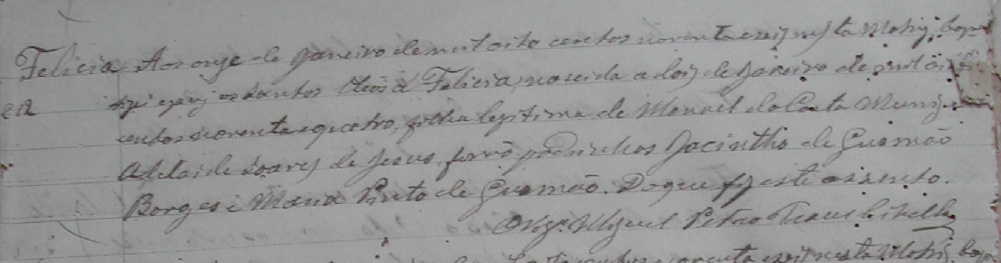 Felicia Aos onze de Janeiro de mil oito centos noventa e seis nesta Matriz, bap
tizei e puz os Santos Oleos a Felicia, nascida a dois de Janeiro de mil oito
centos noventa e quatro, filha legitima de Manoel da Costa Muniz e
Adelaide Soares de Jesus, forão padrinhos Jacintho de Gusmão
Borges e Maria Pinto de Gusmão. Do que fiz este assento.
O Vigr.º Miguel Petro
centos noventa e seis nesta Matriz, bap